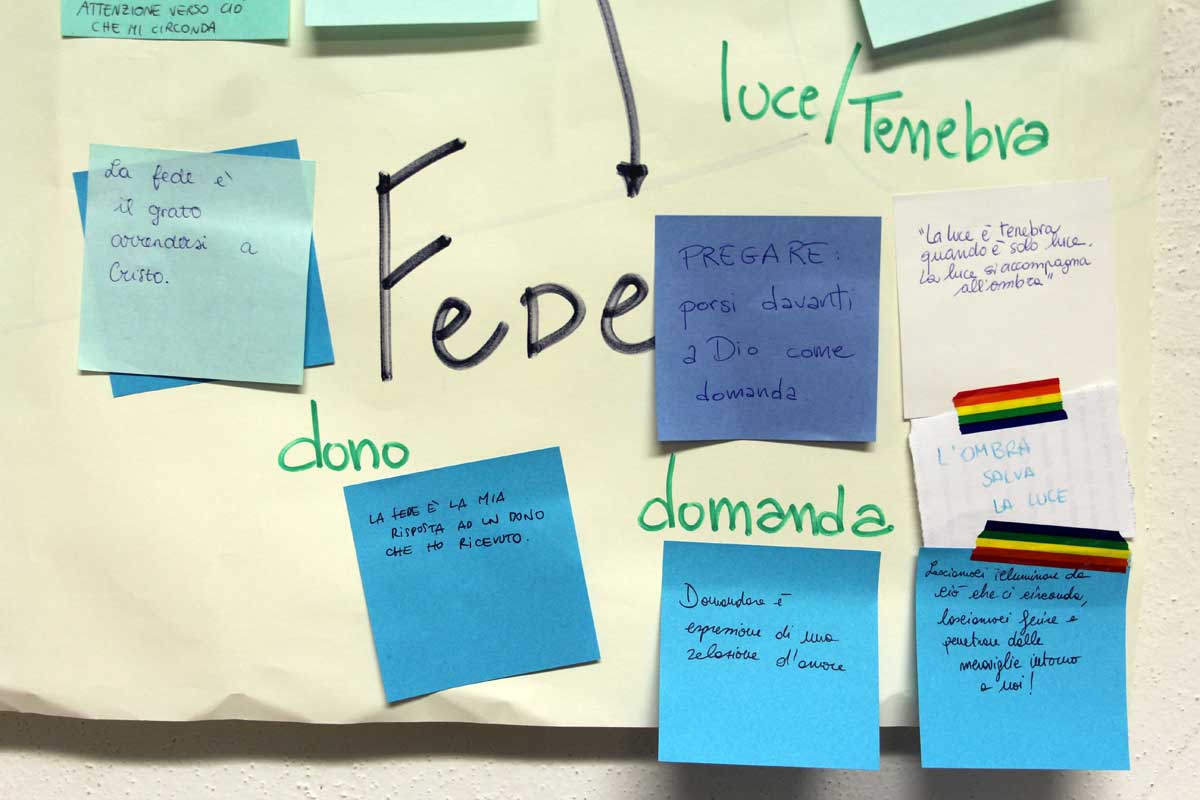 ATTENZIONE VERSO CIÒ
CHE MI CIRCONDA
luce/Tenebra
Fede
La fede è
il grato
arrendersi a
Cristo.
PREGARE:
porsi davanti
a Dio come
domanda.
"La luce è tenebra
quando è solo luce.
La luce si accompagna
all'ombra"
L'OMBRA
SALVA
LA LUCE
dono
LA FEDE È LA MIA
RISPOSTA AD UN DONO
CHE HO RICEVUTO.
domanda
Domandare è
espressione di una
relazione d'amore
Lasciamoci illuminare da
ciò che ci circonda,
lasciamoci ferire e
penetrare dalle
meraviglie intorno
a noi!